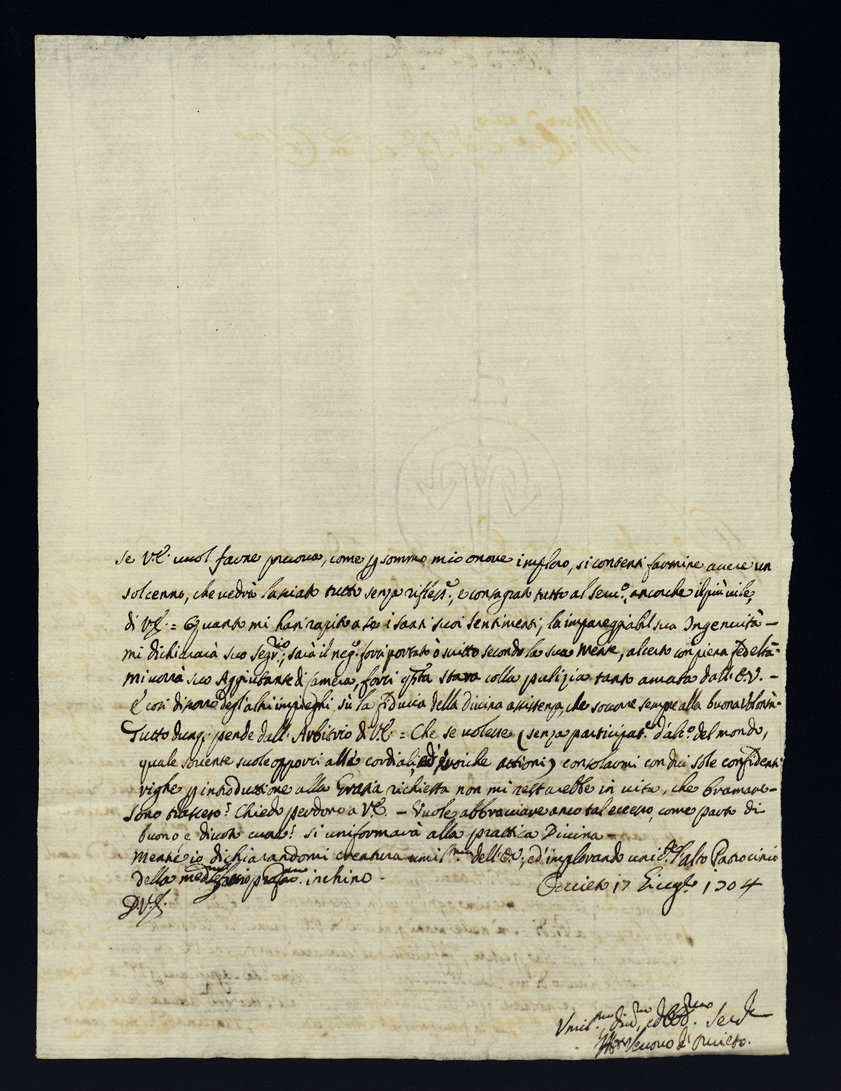 se V.E. vuol farne pruova, come p sommo mio onore imploro, si contenti farmine avere un
sol cenno, che vedrà lasciato tutto senza rifless.e, e consagrato tutto al serv.o, ancorche il più vile,
di V.E. = quanto mi han rapito a se i santi suoi sentimenti; la impareggiabil sua Ingenuità –
mi dichiarà suo Seg.rio; sarà il neg.o forsi portato ò scritto secondo la sua mente, al certo con piena fedeltà =
mi vorrà suo Aggiutante di Camera, forsi q.sta starà colla pulizia tanto amata dall'E.V. –
E così disponedegl'altri impieghi, sù la fiducia della divina assistenza, che socorre sempre alla buona volontà =
Tutto dunq; pende dall'Arbitrio di V.E. = Che se volesse (senza participat.e d'alc.o del mondo,
quale sovente suole opporsi alle cordiali, ed eroiche attioni) consolarmi con due sole confidenti
righe p introduzione alla Grazia richiesta non mi restarebbe in vita, che bramare –
Sono trasceso? Chiedo perdono a V.E. – Vuole abbracciare anco tal eccesso, come parto di
buono e divoto cuore? si uniformarà alla prattica Divina –
Mentre io dichiarandomi creatura umil.ma dell'E.V., ed implorando l'alto Patrocinio
della med.ma inchino.
Orvieto 17 Giug.o 1704
D.V.E.
Umil.mo Div.mo ed Obb.mo Ser.e
Vescovo d'Orvieto.